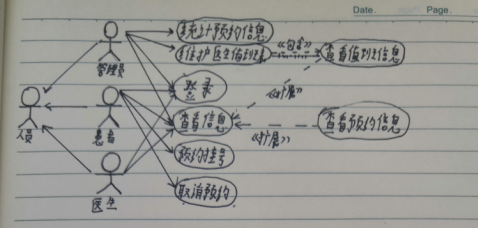 Date. Page.
统计预约信息
维护医生值班表
《包含》
查看值班信息
管理员
登录
《扩展》
人员
患者
查看信息
查看预约信息
《扩展》
预约挂号
医生
取消预约